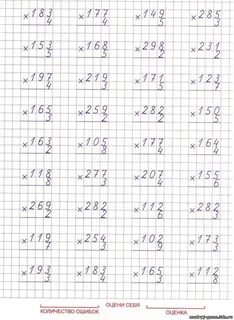 ×183 ×177 ×149 ×285
4 4 5 3
×153 ×168 ×298 ×231
5 5 2 2
×197 ×219 ×171 ×123
4 3 5 7
×165 ×259 ×282 ×150
3 2 2 5
×163 ×105 ×177 ×164
2 8 4 4
×118 ×277 ×207 ×155
8 3 4 6
×269 ×282 ×112 ×282
2 2 6 3
×119 ×254 ×102 ×173
7 3 9 3
×193 ×183 ×165 ×112
3 4 3 8
ОЦЕНИ СЕБЯ
КОЛИЧЕСТВО ОШИБОК ОЦЕНКА